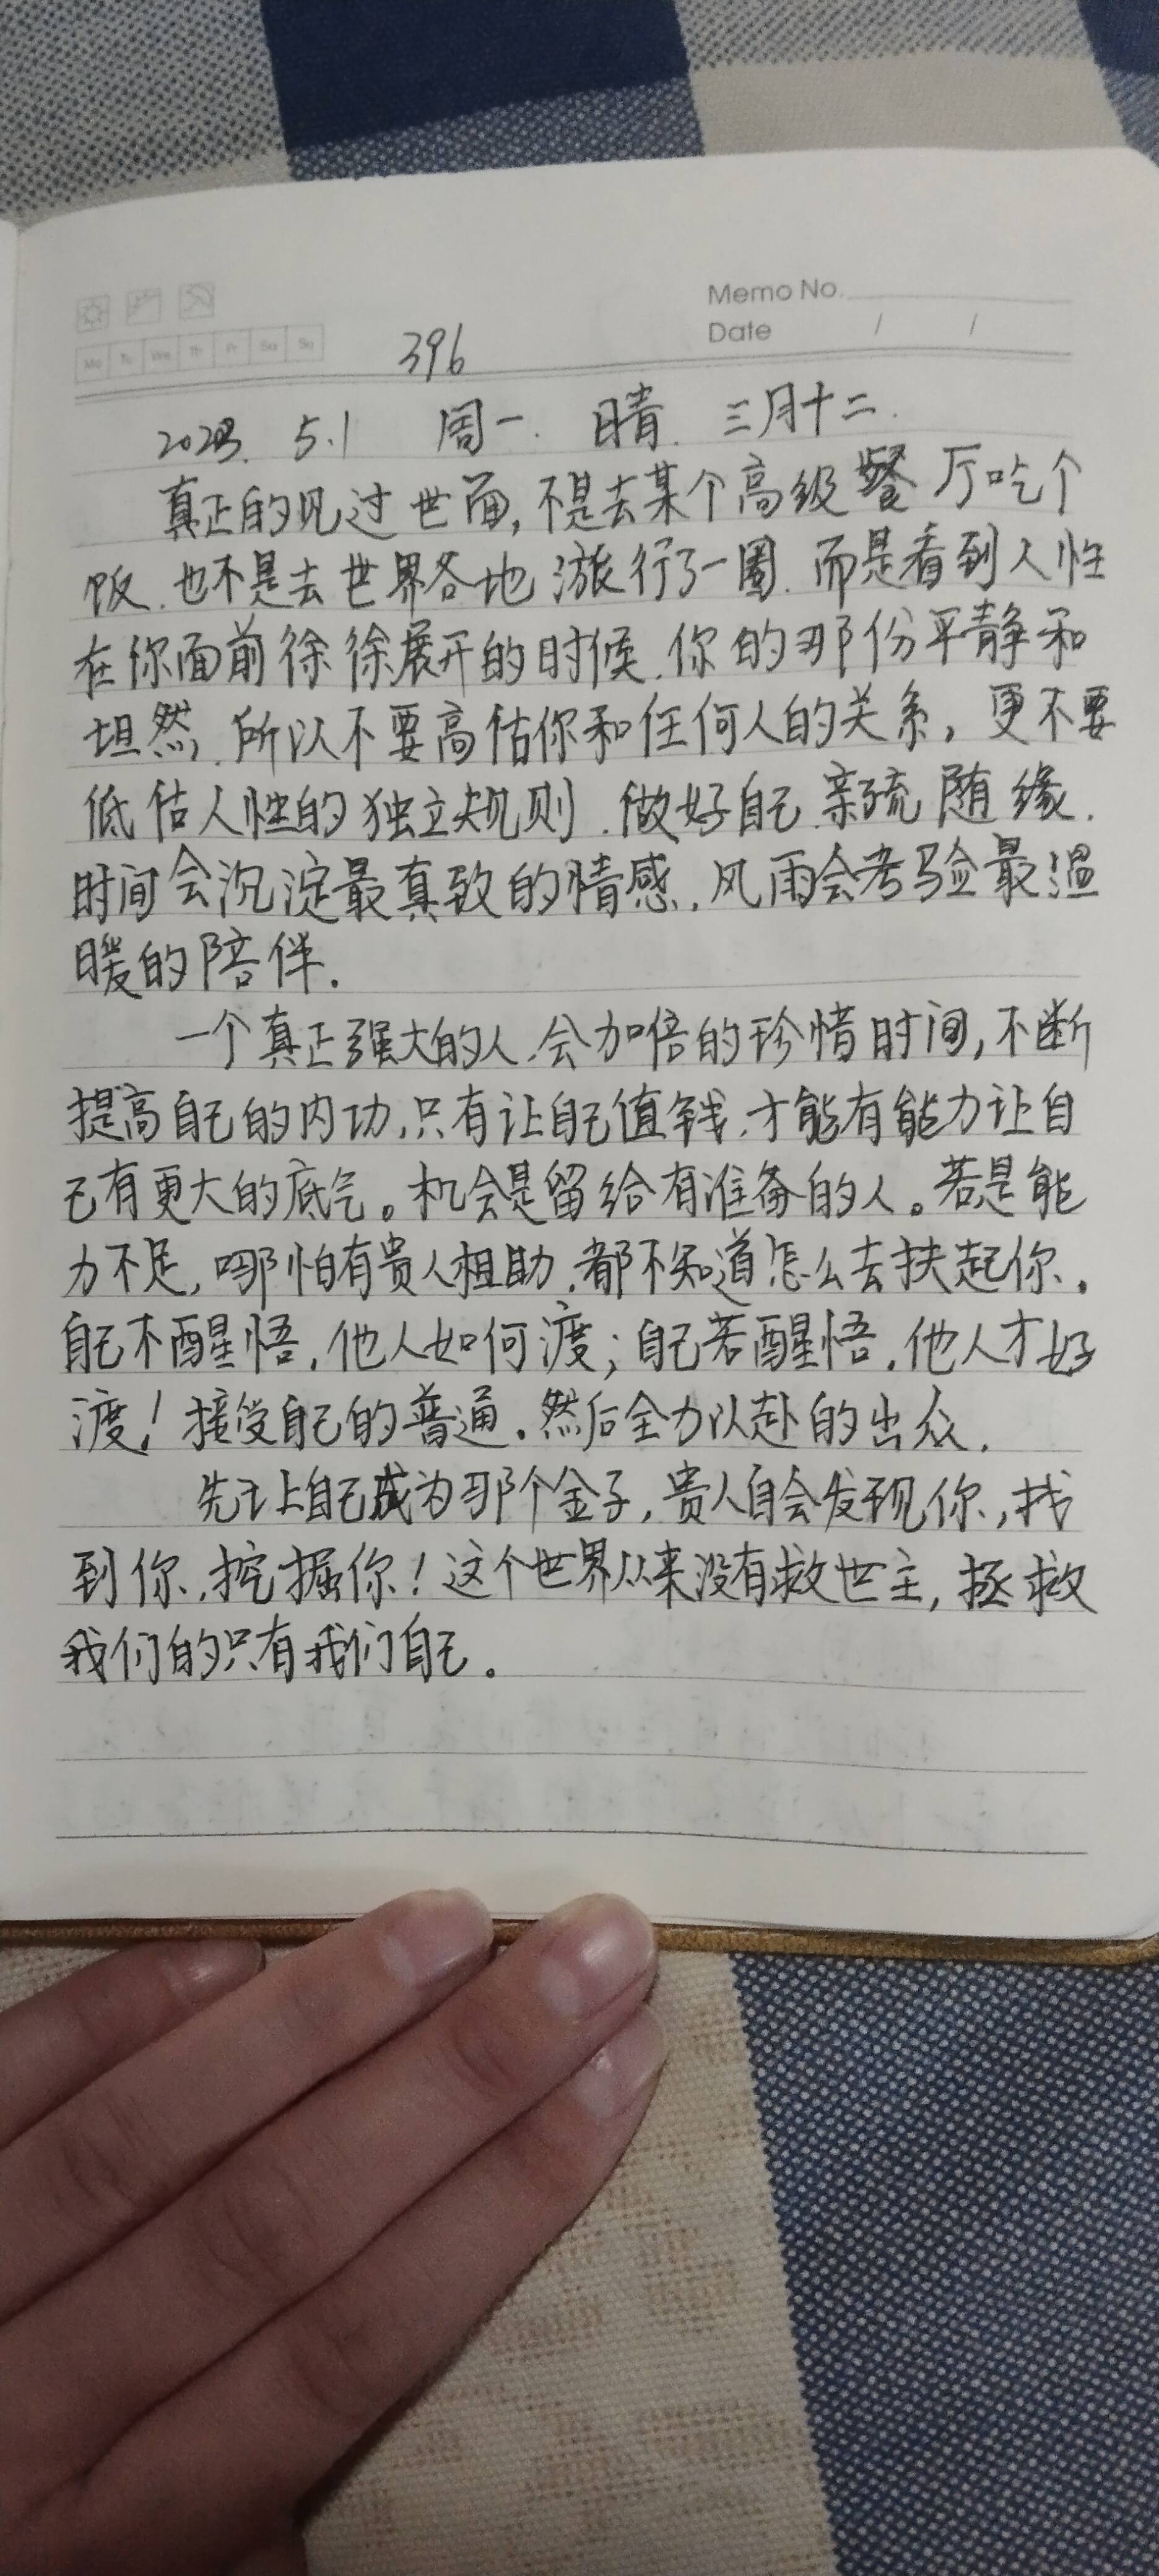 Memo No.
Date / /
Mo Tu We Th Fr Sa Su
396
2023. 5.1 周一. 晴. 三月十二.
真正的见过世面,不是去某个高级餐厅吃个
饭.也不是去世界各地游旅行了一圈.而是看到人性
在你面前徐徐展开的时候.你的那份平静和
坦然.所以不要高估你和任何人的关系,更不要
低估人性的独立规则.做好自己.亲疏随缘.
时间会沉淀最真致的情感.风雨会考验最温
暖的陪伴.
一个真正强大的人.会加倍的珍惜时间,不断
提高自己的内功,只有让自己值钱.才能有能力让自
己有更大的底气。机会是留给有准备的人。若是能
力不足,哪怕有贵人相助.都不知道怎么去扶起你.
自己不醒悟,他人如何渡;自己若醒悟.他人才好
渡!接受自己的普通.然后全力以赴的出众.
先让自己成为那个金子,贵人自会发现你,找
到你,挖掘你!这个世界从来没有救世主,拯救
我们的只有我们自己。